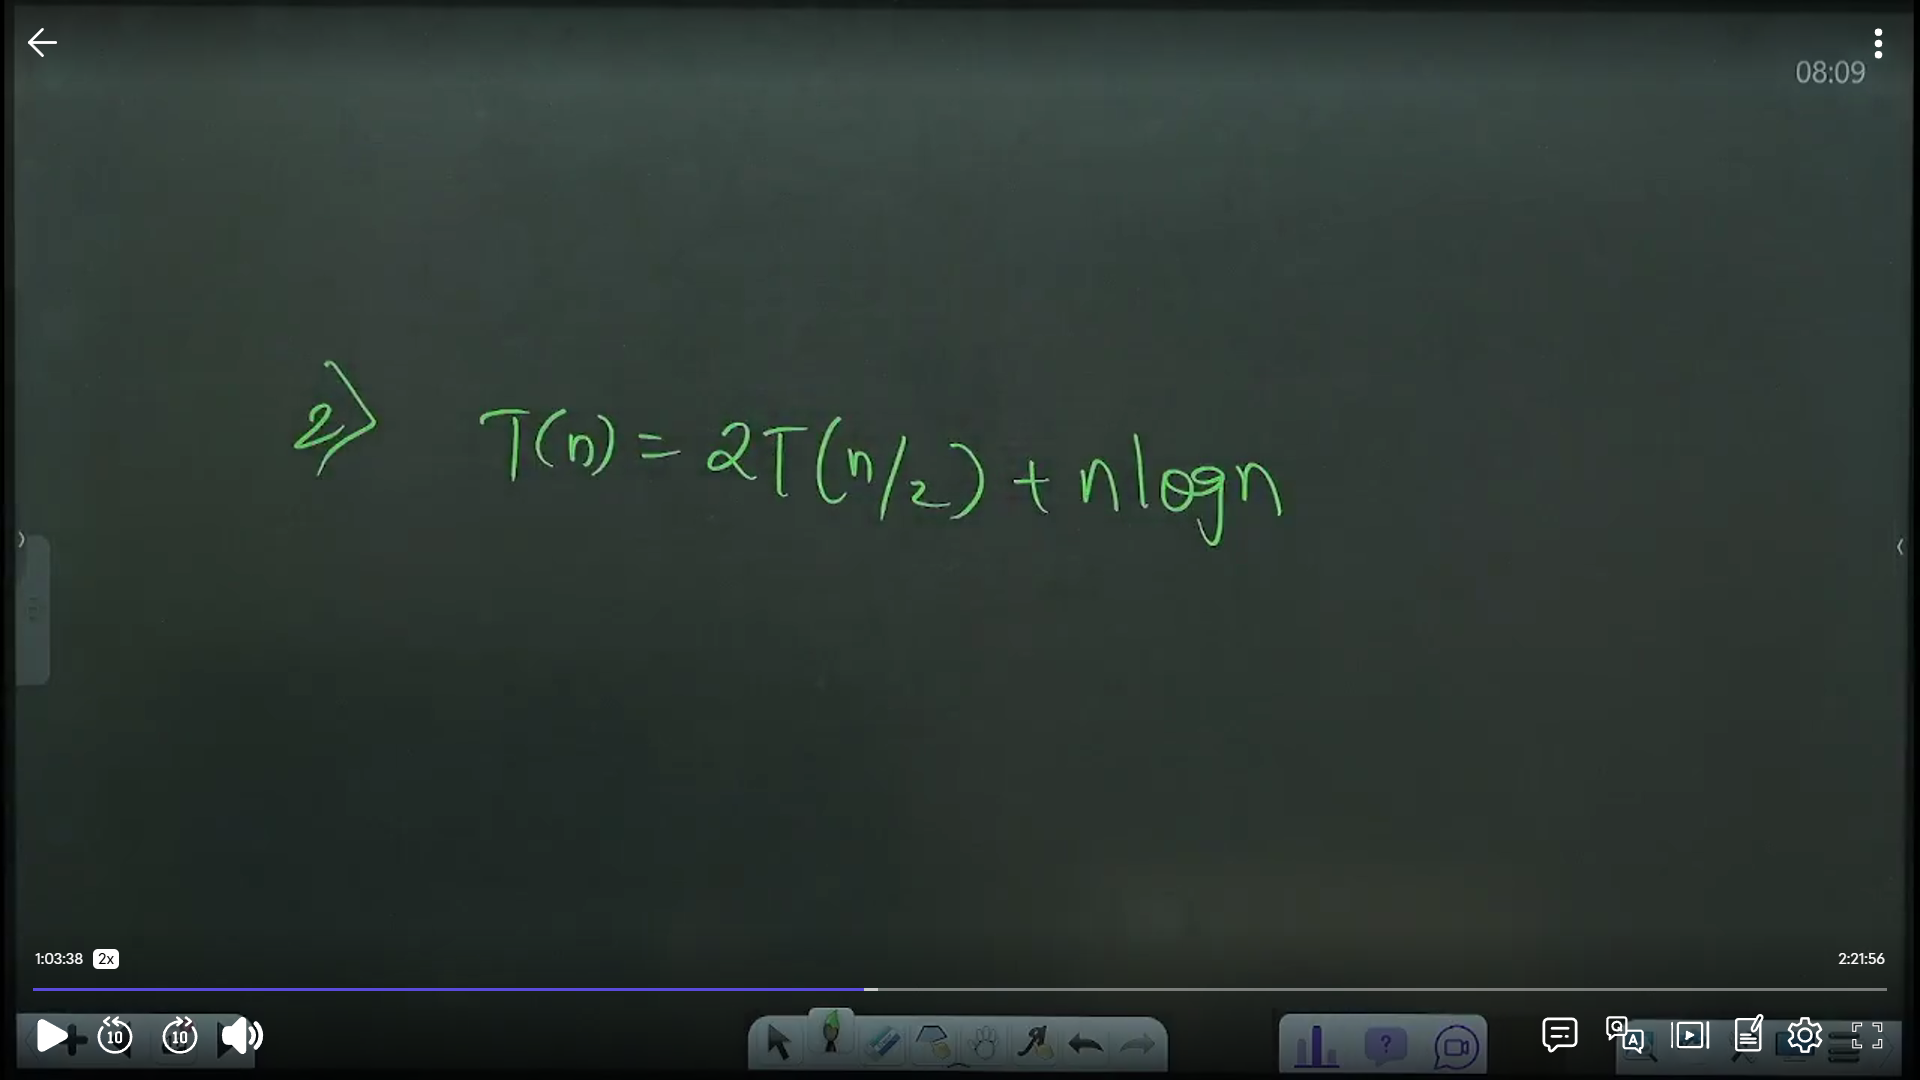 08:09
2) T(n) = 2T(n/2) + nlogn
1:03:38 2x 2:21:56
10 10
? Q A